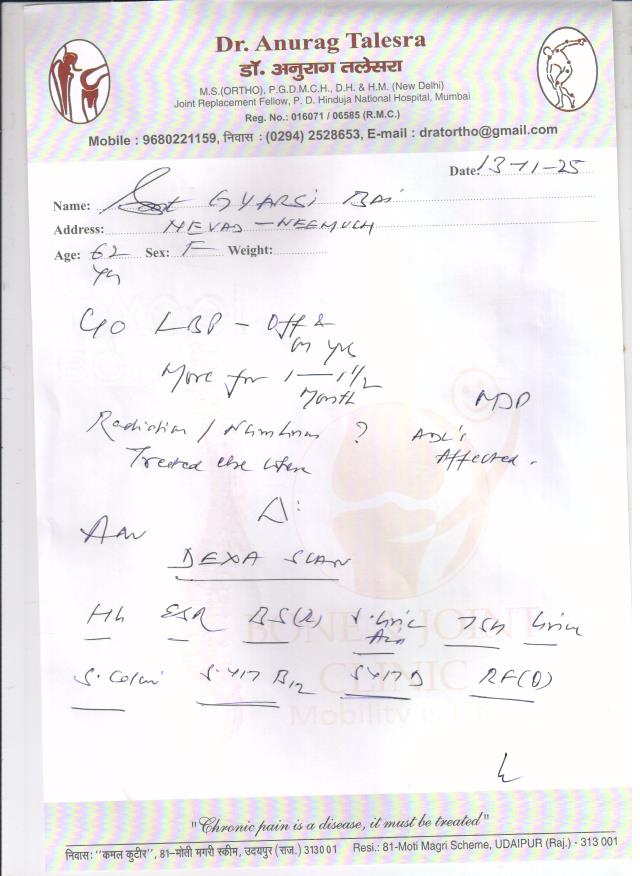 Dr. Anurag Talesra
डॉ. अनुराग तलेसरा
M.S.(ORTHO), P.G.D.M.C.H., D.H. & H.M. (New Delhi)
Joint Replacement Fellow, P. D. Hinduja National Hospital, Mumbai
Reg. No.: 016071 / 06585 (R.M.C.)
Mobile : 9680221159, निवास : (0294) 2528653, E-mail : dratortho@gmail.com
Date: 13-11-25
Name: GYARSI BAI
Address: NEEMUCH
Age: 62 Sex: F Weight:
Yrs
C/O LBP - Off &
on
More for 1-1 1/2
Month
MDP
Radiation / Numbness ? ADL's
Treated else where Affected.
Δ:
Adv
DEXA SCAN
Hb ESR BS(R) S. Uric TSH Urine
Acid
S. Calci S. VIT B12 S VIT D RF(Q)
BONE & JOINT
CLINIC
Mobility is
"Chronic pain is a disease, it must be treated"
निवास: "कमल कुटीर", 81-मोती मगरी स्कीम, उदयपुर (राज.) 313001 Resi.: 81-Moti Magri Scheme, UDAIPUR (Raj.) - 313 001